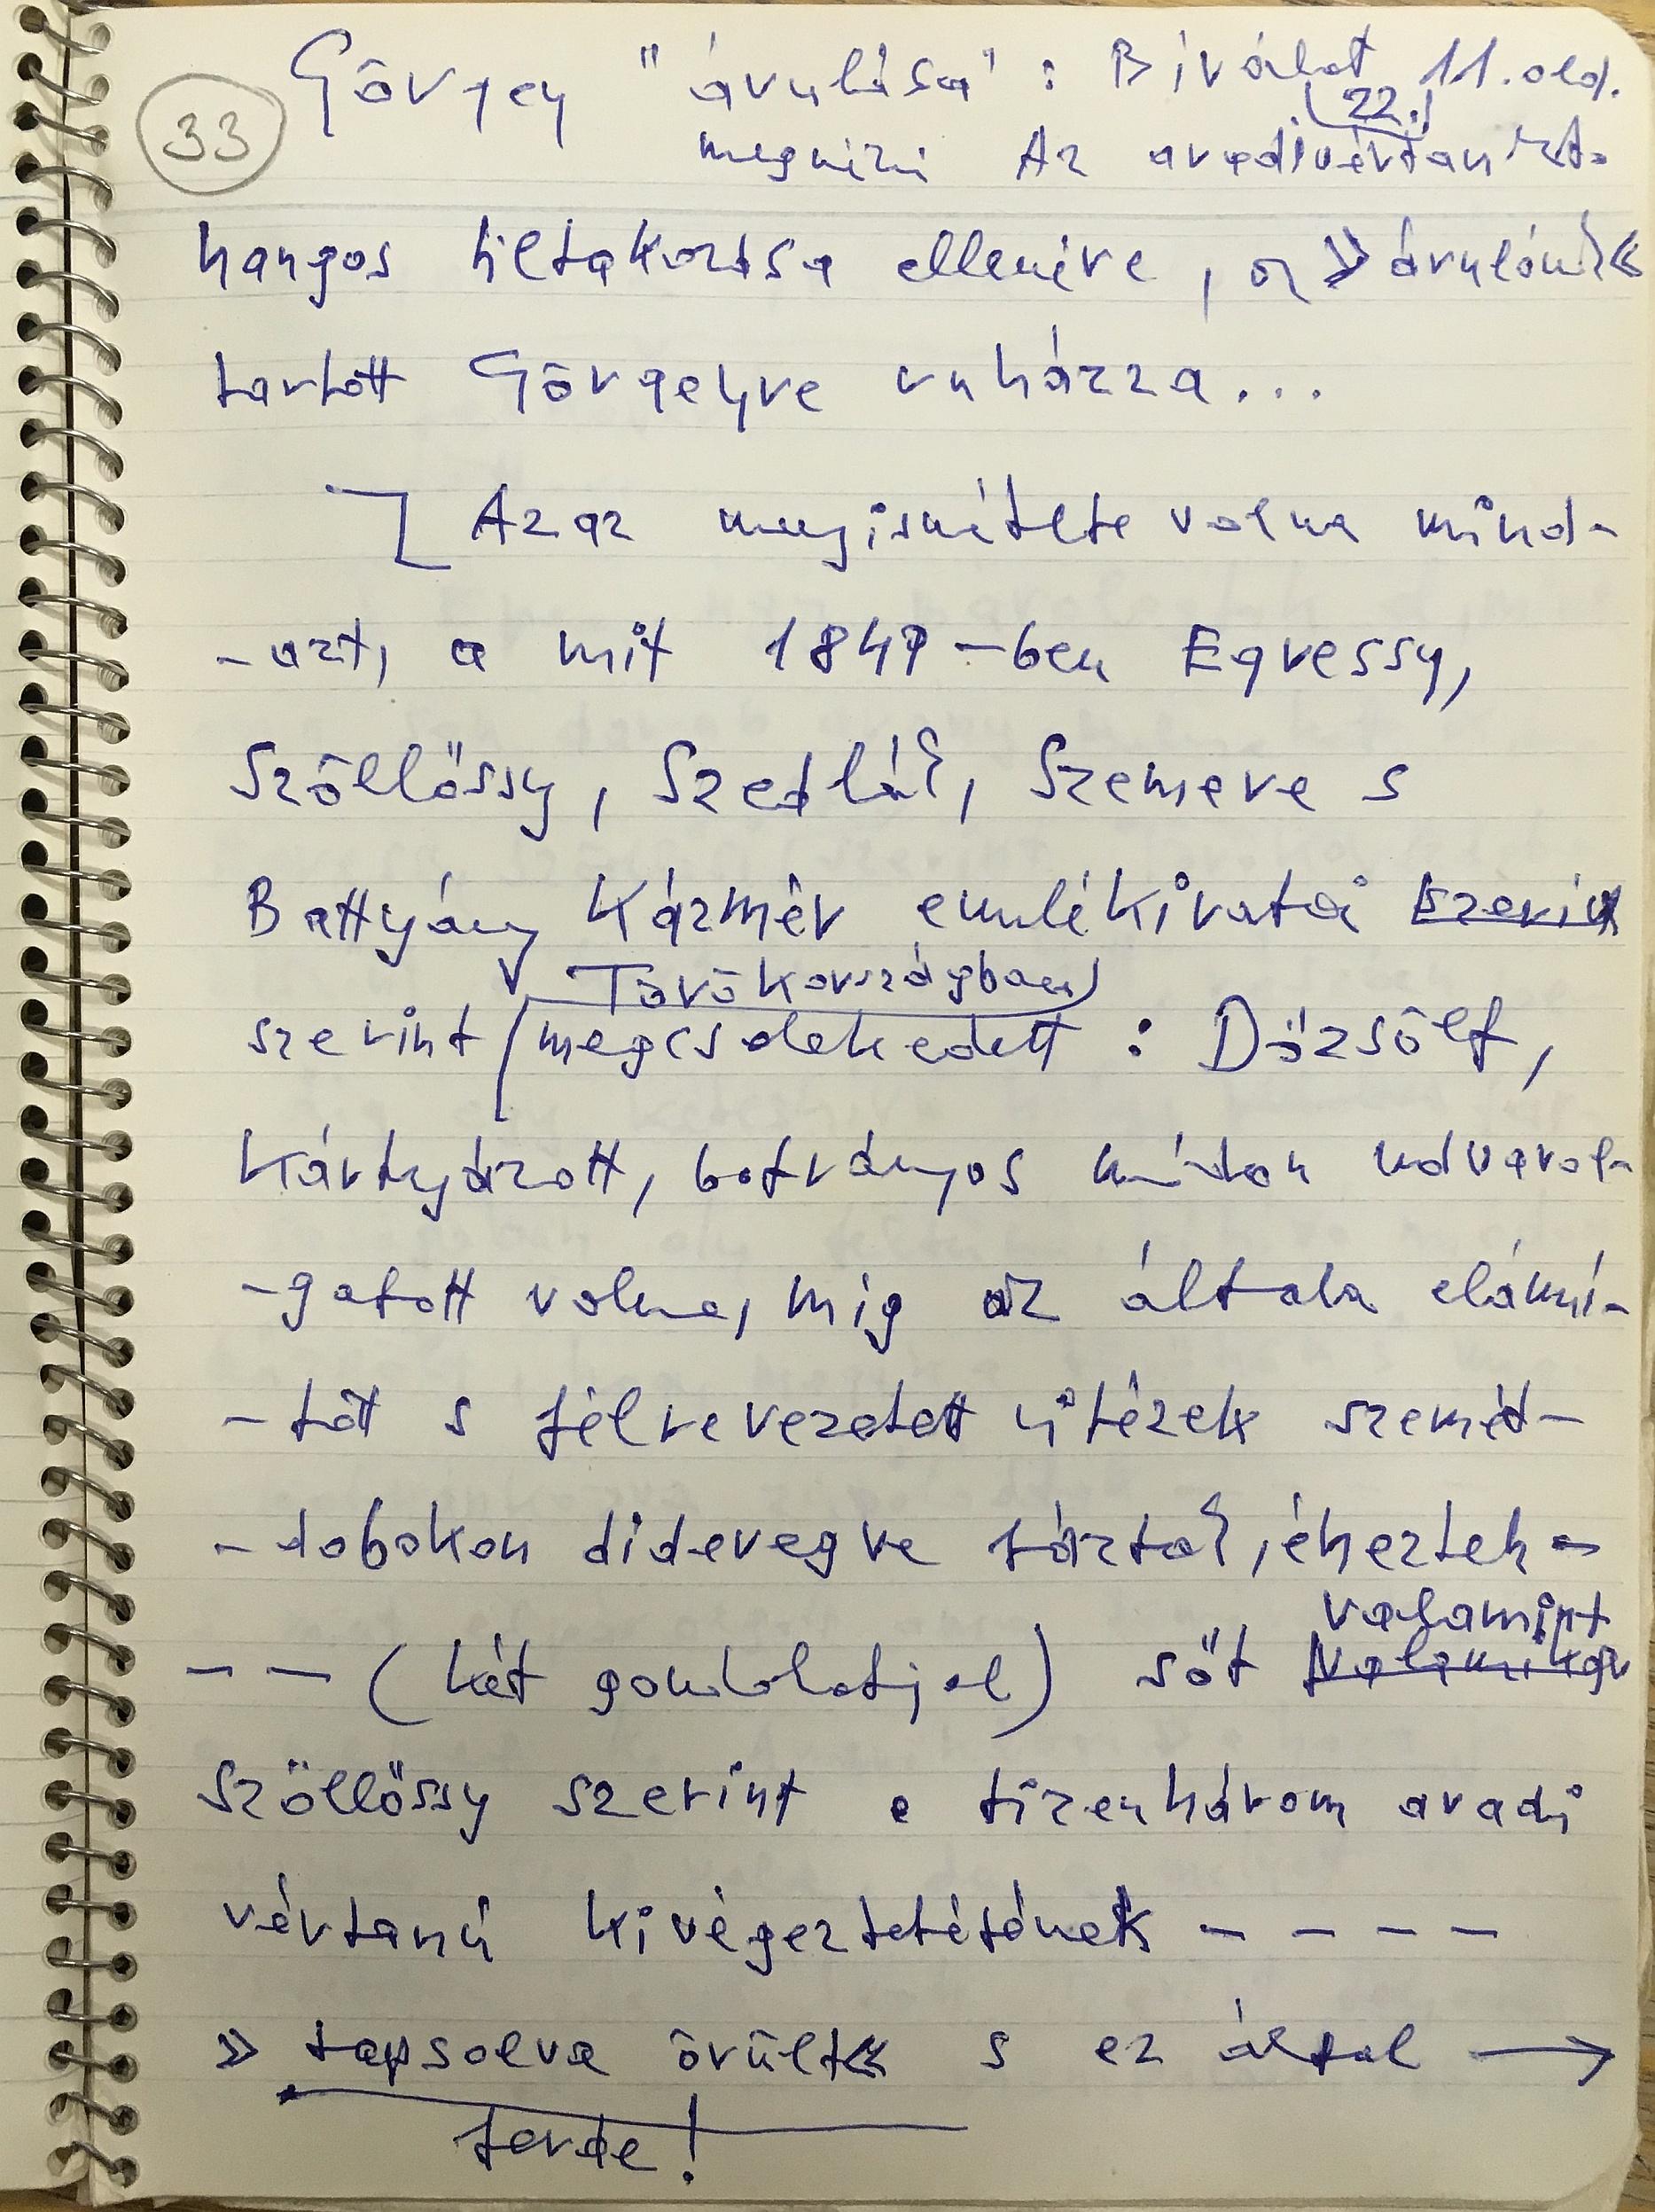 Görgey "árulása": Bírálat 11. old.
(22.)
33
megnézni Az aradi vértanúkat.
hangos tiltakozása ellenére, az »árulónak«
tartott Görgeyre ruházza...
Azaz megismételte volna mind-
-azt, a mit 1849-ben Egressy,
Szöllőssy, Szedlák, Szemere s
Batthyány Kázmér emlékiratai szerint
Törökországban
szerint megcselekedett : Dőzsölt,
kártyázott, botrányos módon udvarol-
-gatott volna, míg az általa elámí-
-tott s félrevezetett vitézek szemét-
-dobokon dideregve fáztak, éheztek -
valamint
- - (két gondolatjel) sőt valamikor
Szöllőssy szerint a tizenhárom aradi
vértanú kivégeztetésének - - - -
» tapsolva örült« s ez által →
ferde!